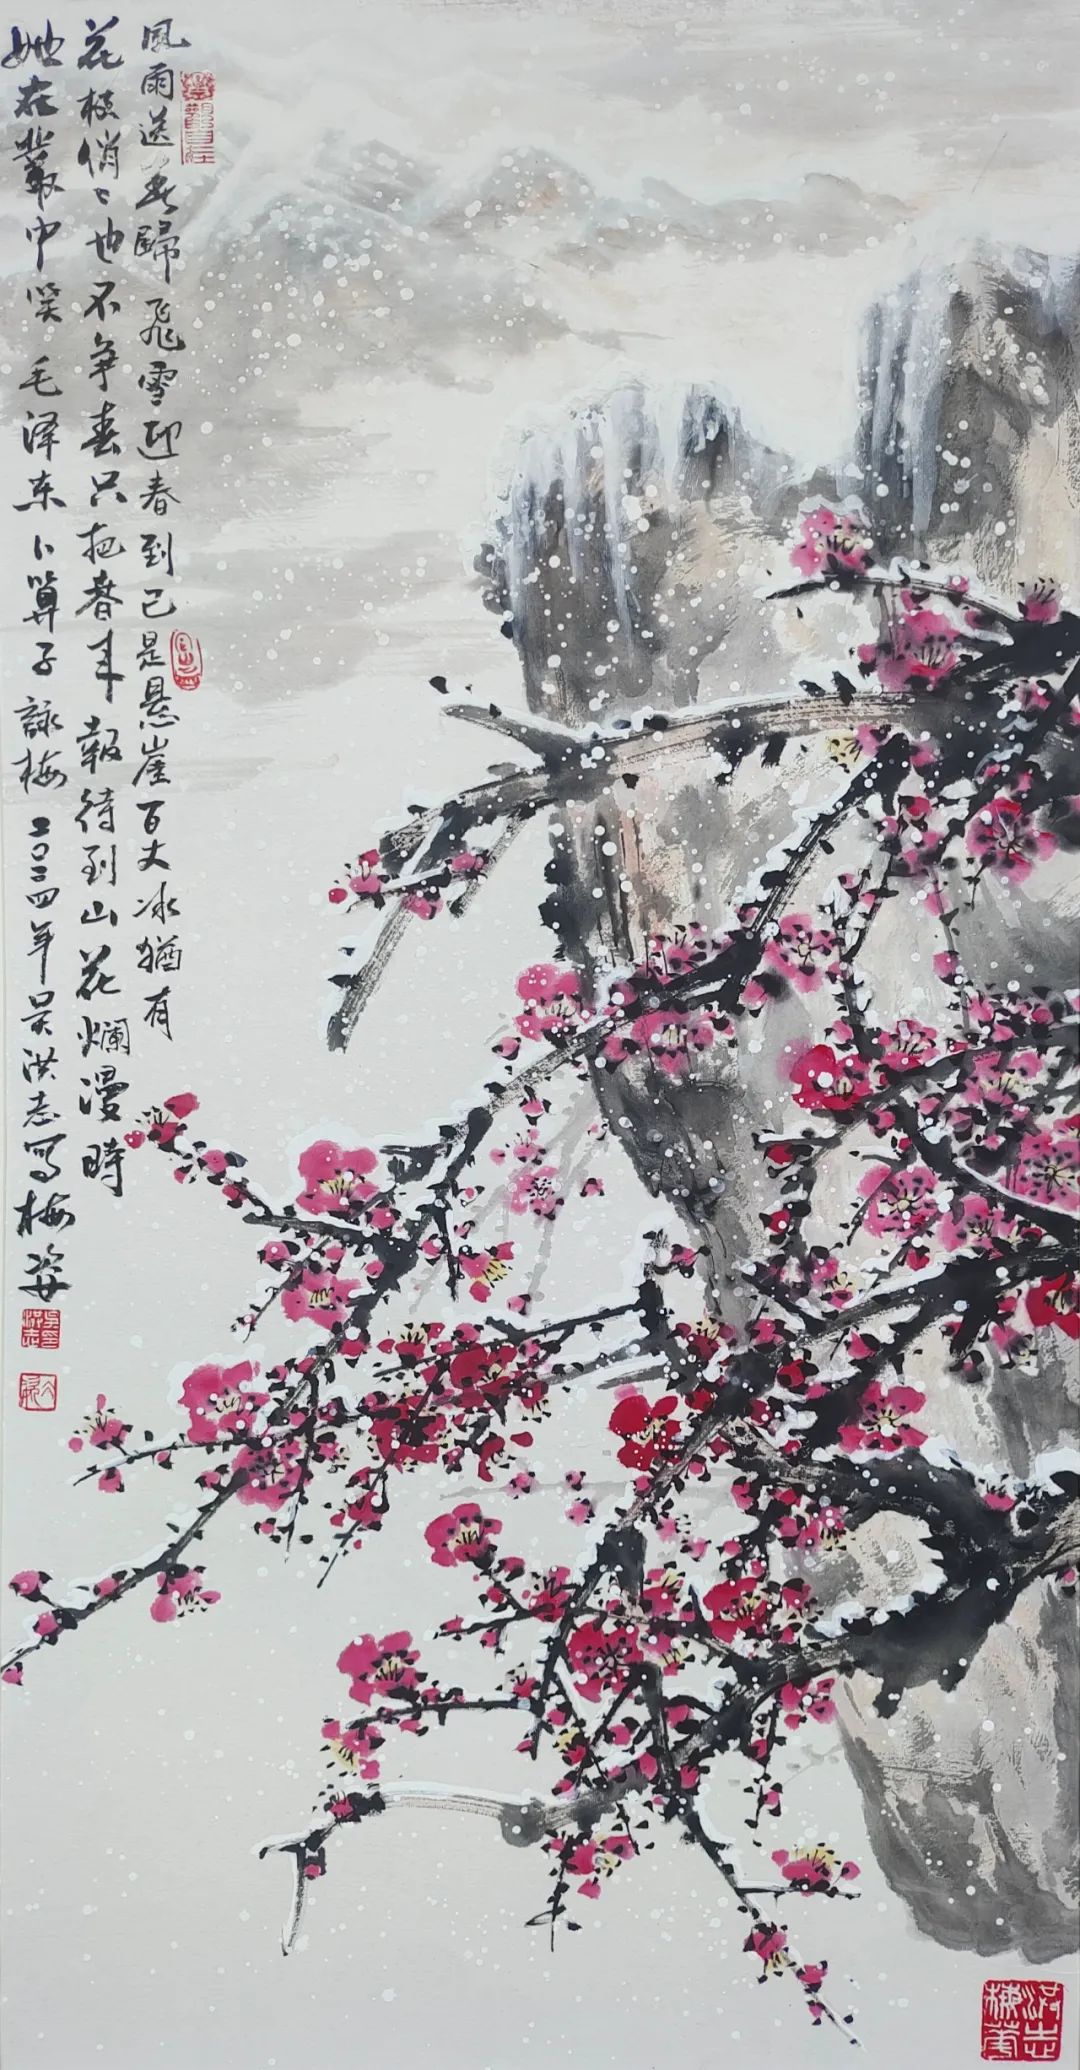 風雨送春歸飛雪迎春到已是悬崖百丈冰猶有
花枝俏〻也不争春只把春来報待到山花爛漫時
她在叢中笑 毛泽东 卜算子 詠梅 二〇二四年吴洪志写梅姿
洪志